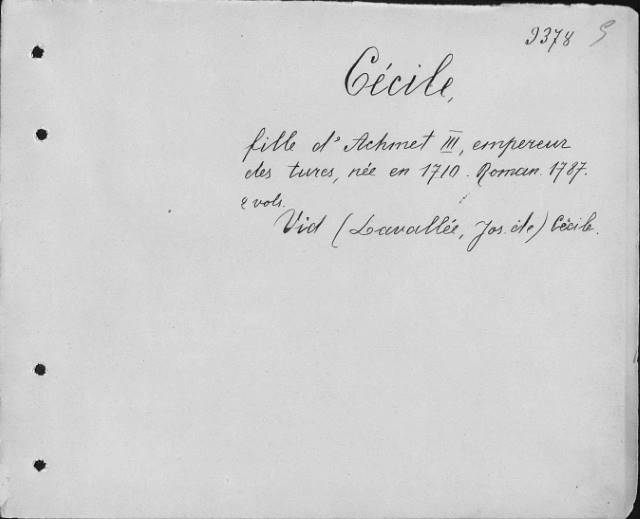 9378 G
Cécile,
fille d'Achmet III, empereur
des turcs, née en 1710. Roman. 1787.
2 vols.
Vid (Lavallée, Jos. de) Cécile.